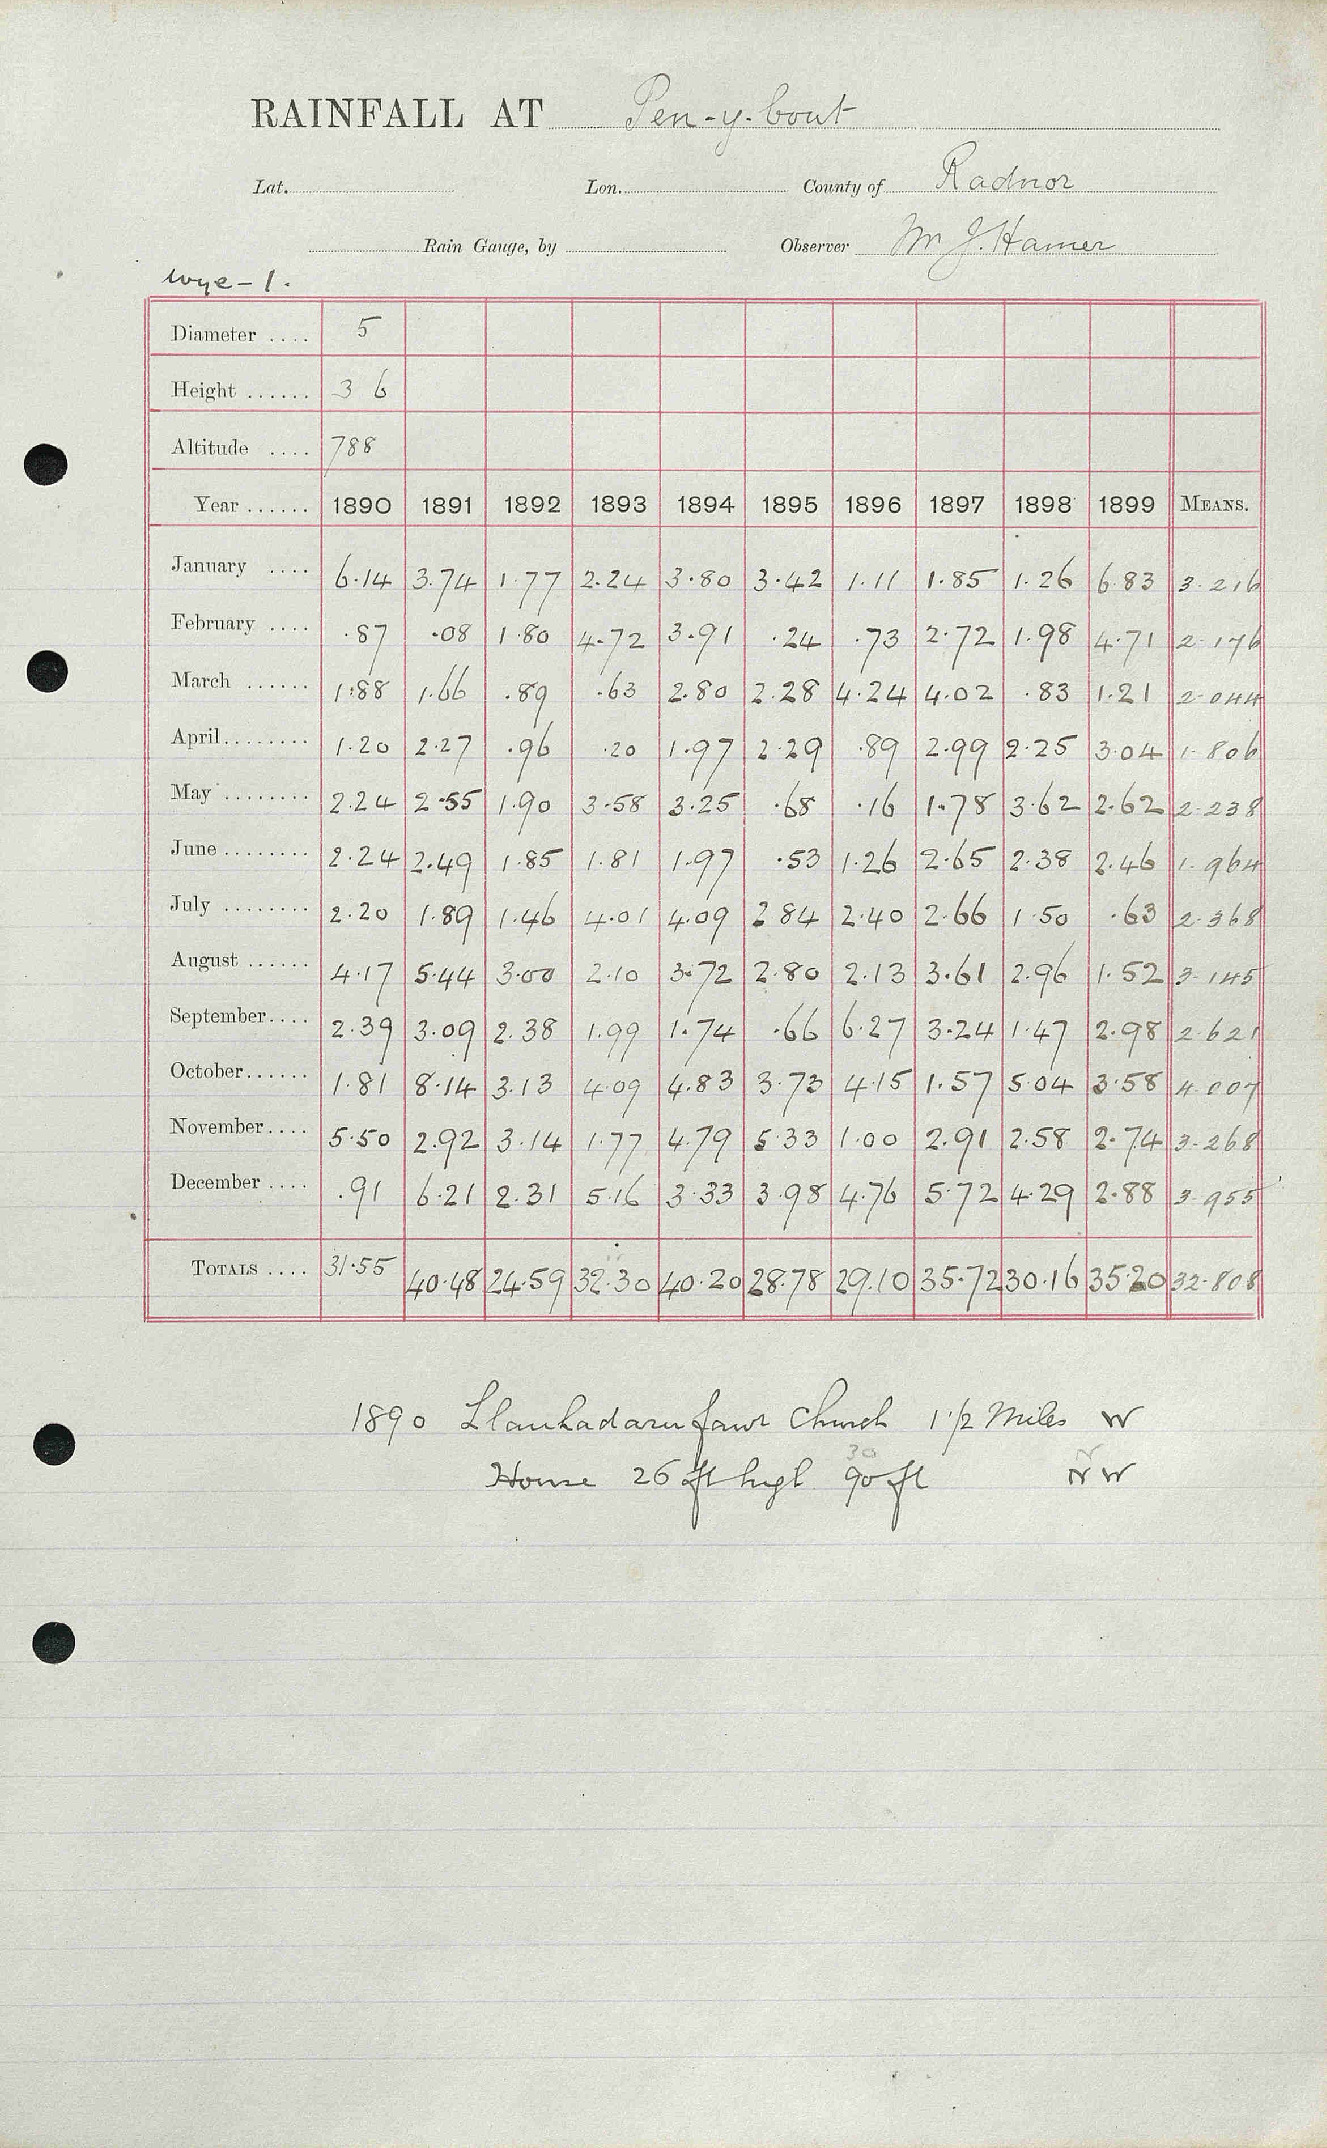 RAINFALL AT Pen-y-bont
Lat. Lon. County of Radnor
Rain Gauge, by Observer Mr J. Hamer
Wye-1.
Diameter .... 5
Height ...... 3 6
Altitude .... 788
Year ...... 1890 1891 1892 1893 1894 1895 1896 1897 1898 1899 MEANS.
January .... 6.14 3.74 1.77 2.24 3.80 3.42 1.11 1.85 1.26 6.83 3.216
February .... .87 .08 1.80 4.72 3.91 .24 .73 2.72 1.98 4.71 2.176
March ...... 1.88 1.66 .89 .63 2.80 2.28 4.24 4.02 .83 1.21 2.044
April........ 1.20 2.27 .96 .20 1.97 2.29 .89 2.99 2.25 3.04 1.806
May ........ 2.24 2.55 1.90 3.58 3.25 .68 .16 1.78 3.62 2.62 2.238
June ........ 2.24 2.49 1.85 1.81 1.97 .53 1.26 2.65 2.38 2.46 1.964
July ........ 2.20 1.89 1.46 4.01 4.09 2.84 2.40 2.66 1.50 .63 2.368
August ...... 4.17 5.44 3.00 2.10 3.72 2.80 2.13 3.61 2.96 1.52 3.145
September.... 2.39 3.09 2.38 1.99 1.74 .66 6.27 3.24 1.47 2.98 2.621
October...... 1.81 8.14 3.13 4.09 4.83 3.73 4.15 1.57 5.04 3.58 4.007
November.... 5.50 2.92 3.14 1.77 4.79 5.33 1.00 2.91 2.58 2.74 3.268
December .... .91 6.21 2.31 5.16 3.33 3.98 4.76 5.72 4.29 2.88 3.955
TOTALS .... 31.55 40.48 24.59 32.30 40.20 28.78 29.10 35.72 30.16 35.20 32.808
1890 Llanhadarn fawr Church 1 1/2 Miles W
30 N
House 26 ft high 90 ft NW